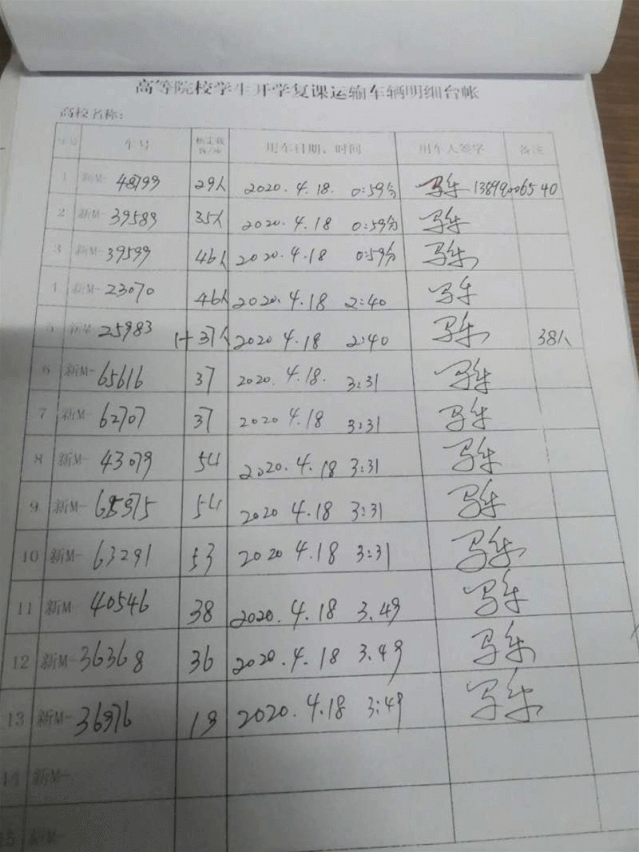 高等院校学生开学复课运输车辆明细台帐
高校名称:
车号 用车日期、时间 用车人签字 备注
1 新M- 48799 29人 2020.4.18. 0:59分 马车
2 新M- 39589 35人 2020.4.18 0:59分 马车
3 新M- 39599 46人 2020.4.18 0:59分 马车
4 新M- 23070 46人 2020.4.18 2:40 马车
5 25983 1+37人 2020 4.18 2:40 马车 38人
6 新M- 65616 37 2020.4.18. 3:31 马车
7 新M- 62707 37 2020 4.18 3:31 马车
8 新M- 43079 54 2020.4.18 3:31 马车
9 新M- 54 2020 4.18 3:31 马车
10 新M- 63291 53 2020 4.18 3:31 马车
11 新M- 40546 38 2020.4.18 3.49 马车
12 新M- 36368 36 2020.4.18 3.49 马车
13 新M- 36976 19 2020.4.18 3:49 马车
14 新M-
15 新M-